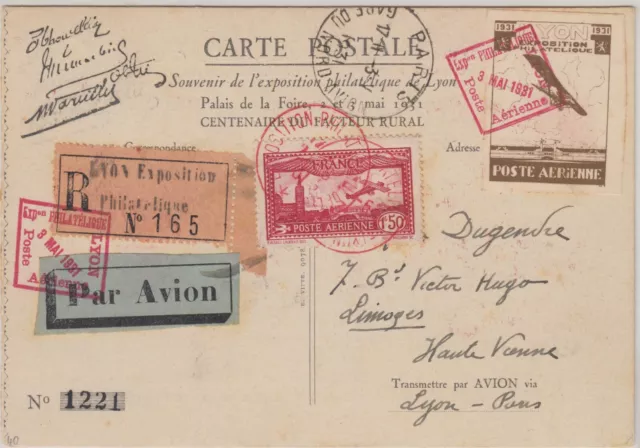 CARTE POSTALE
Souvenir de l'exposition philatélique de Lyon
Palais de la Foire, 2 et 3 mai 1931
CENTENAIRE DU FACTEUR RURAL
Correspondance
Adresse
PARIS
GARE DU NORD
1931 LYON 1931
EXPOSITION
PHILATELIQUE
POSTE AERIENNE
Expon PHILATELIQUE
3 MAI 1931
Poste
Aérienne
LYON Exposition
Philatélique
R
N° 165
FRANCE
POSTE AERIENNE
1F50
Expon PHILATELIQUE
LYON
3 MAI 1931
Poste
Aérienne
Par Avion
Dugendre
7. Bd Victor Hugo
Limoges
Haute Vienne
Transmettre par AVION via
Lyon - Paris
No 1221
40